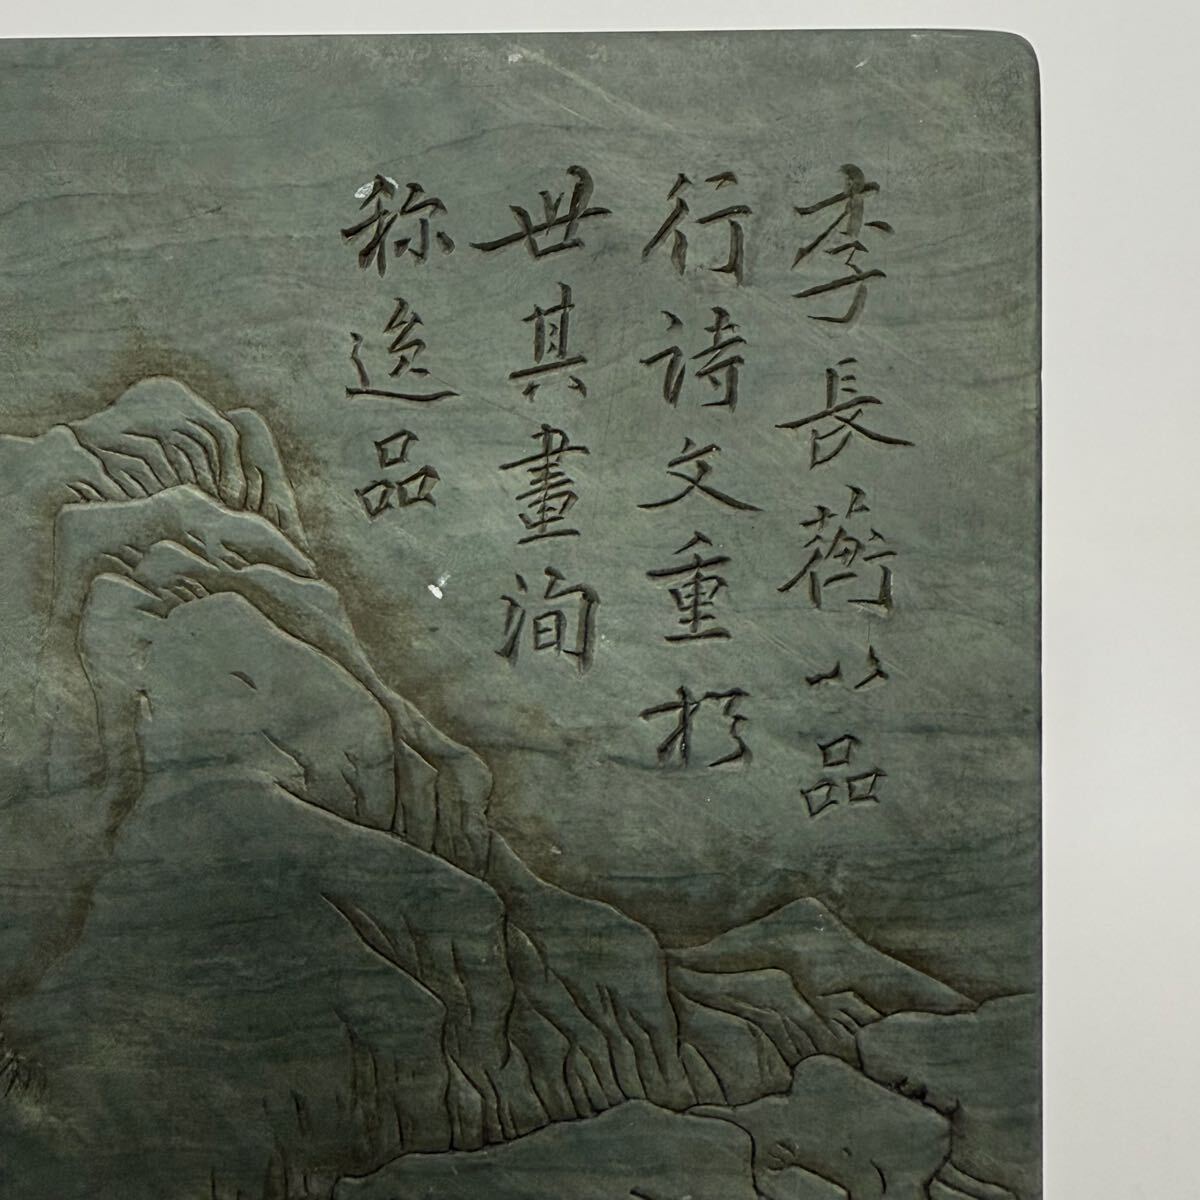 李長蘅人品
行詩文重於
世其畫洵
称逸品